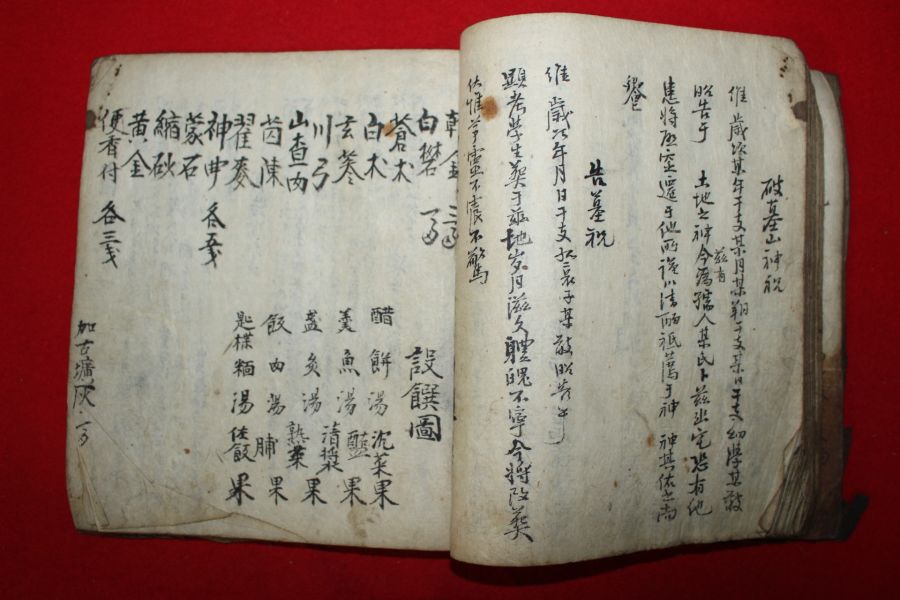 破墓山神祝
維 歲次某年干支某月某朔干支某日干支幼學某敢
昭告于 土地之神今爲孺人某氏卜玆幽宅恐有他
玆有
患將啓窆遷于他所謹以淸酌祗薦于神 神其佑之尙
饗
告墓祝
維 歲次年月日干支孤哀子某敢昭告于
顯考學生葬于玆地歲月滋久體魄不寧今將改葬
伏惟尊靈不震不驚
白礬
蒼朮
白朮
玄蔘
川弓
山査肉
茵陳
瞿麥
神曲 各五戔
蒙石
縮砂
黃金
便香付 各三戔
加古壙灰
設饌圖
醋 餠 湯 沈菜 果
羹 魚 湯 醢 果
盞 炙 湯 淸醬 果
熟菜
飯 肉 湯 脯 果
匙楪 麵 湯 佐飯 果